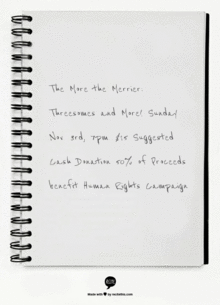 The More the Merrier:
Threesomes and More! Sunday
Nov 3rd, 7pm $15 Suggested
Cash Donation 50% of Proceeds
benefit Human Rights Campaign
Made with ♥ by recitethis.com